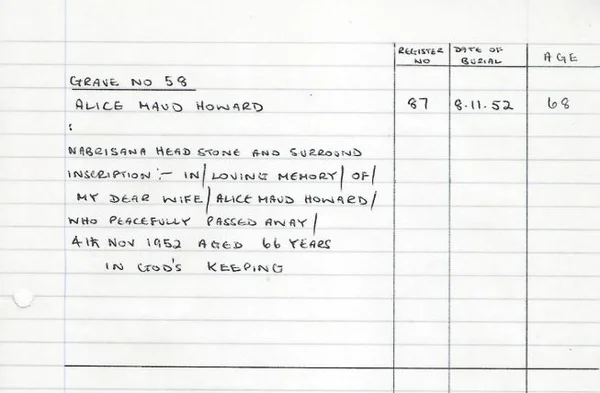 REGISTER NO
DATE OF BURIAL
AGE
GRAVE NO 58
ALICE MAUD HOWARD 87 8.11.52 68
:
NABRISANA HEAD STONE AND SURROUND
INSCRIPTION :- IN / LOVING MEMORY / OF /
MY DEAR WIFE / ALICE MAUD HOWARD /
WHO PEACEFULLY PASSED AWAY /
4th NOV 1952 AGED 66 YEARS
IN GOD'S KEEPING